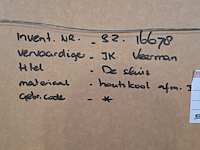 Invent. NR. - S2. 16678
vervaardiger - JK. Veerman
titel - De sluis
materiaal - houtskool afm. 3
Gebr. code - *